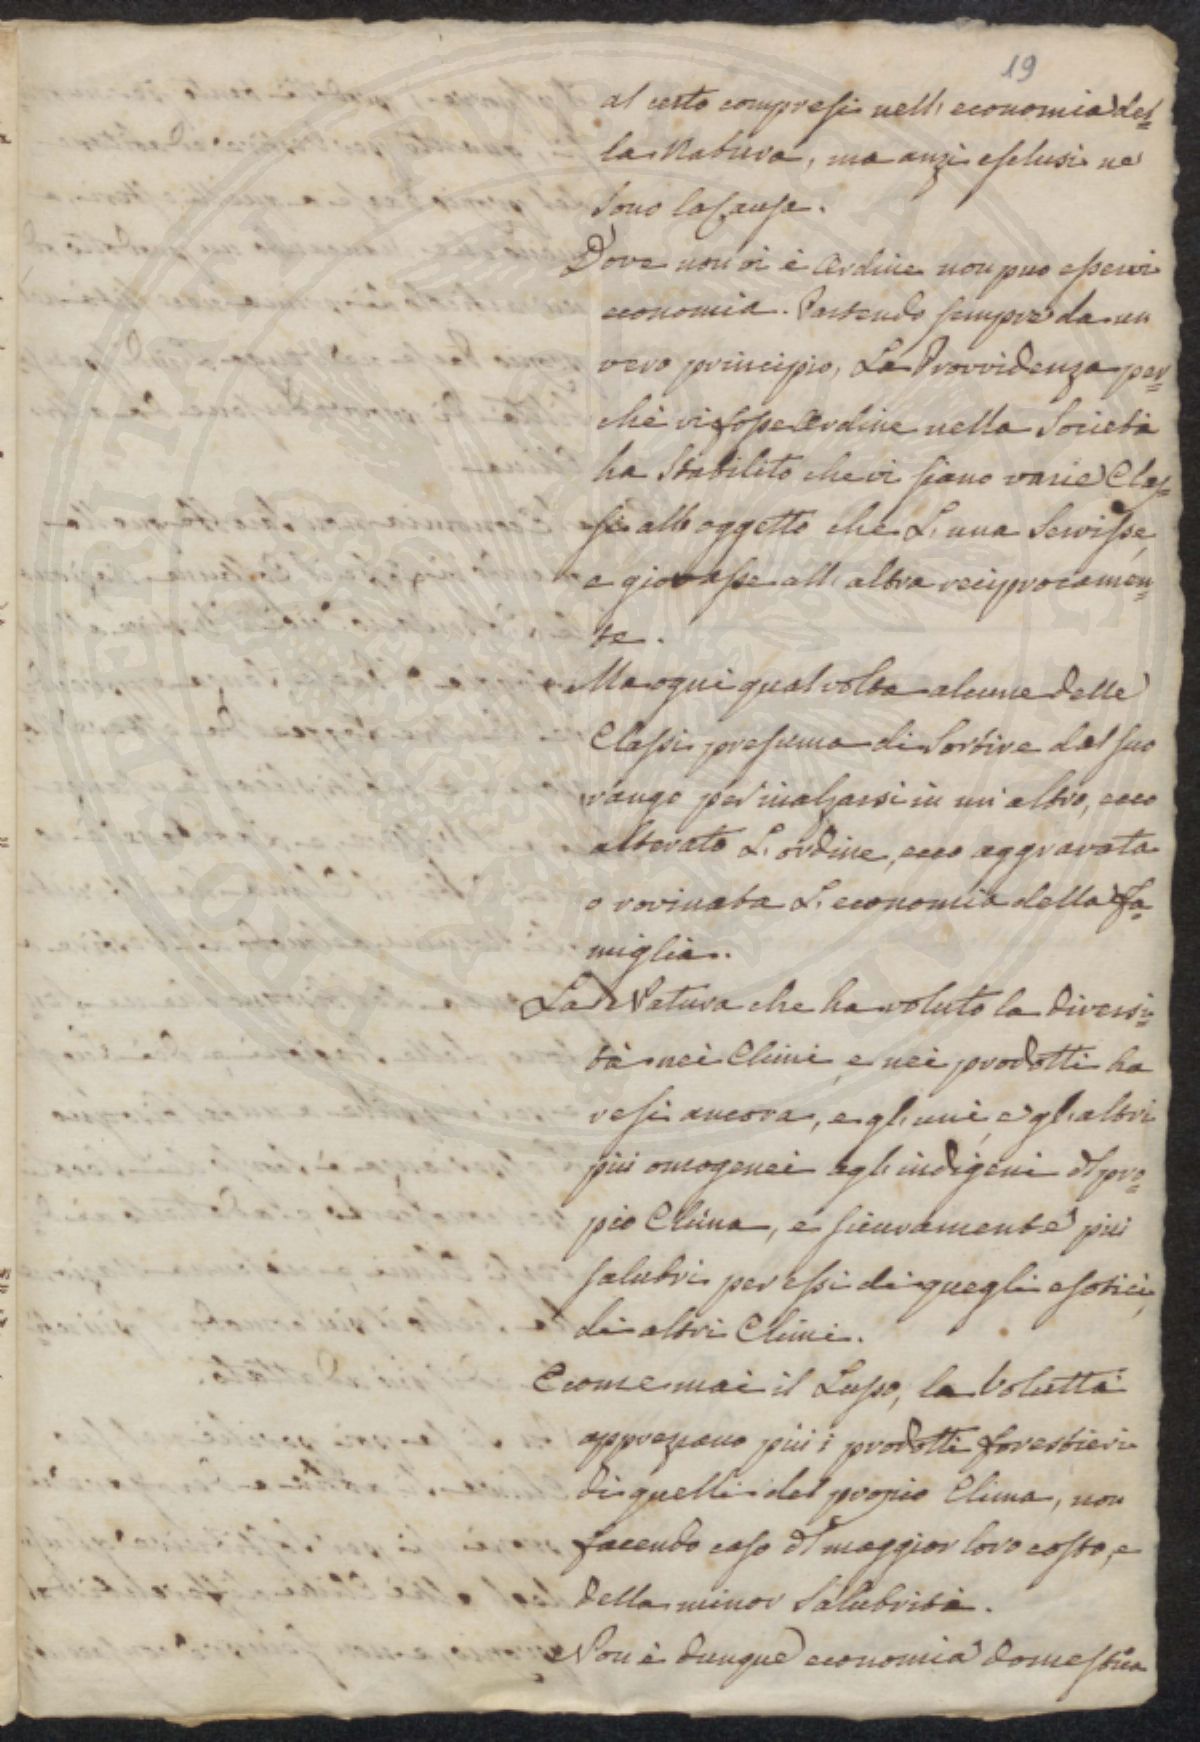 19
al certo compresi nell'economia del=
la Natura, ma anzi esclusi ne
sono la causa.
Dove non vi è Ordine non può esservi
economia. Partendo sempre da un
vero principio, La Provvidenza per=
chè vi fosse Ordine nella Società
ha stabilito che vi siano varie Clas=
si all'oggetto che L'una servisse,
e giovasse all'altra reciprocamen=
te.
Ma ogni qual volta alcune delle
Classi presuma di sortire dal suo
rango per inalzarsi in un'altro, ecco
alterato L'ordine, ecco aggravata
o rovinata L'economia della fa=
miglia.
La Natura che ha voluto la diversi=
tà nei Climi, e nei prodotti ha
resi ancora, e gl'uni, e gl'altri
più omogenei agl'indigeni del pro=
pio Clima, e sicuramente più
salubri per essi di quegli esotici,
di altri Climi.
E come mai il Lusso, la Voluttà
apprezzano più i prodotti forestieri
di quelli del propio Clima, non
facendo caso del maggior loro costo, e
della minor salubrità.
Non è dunque economia domestica